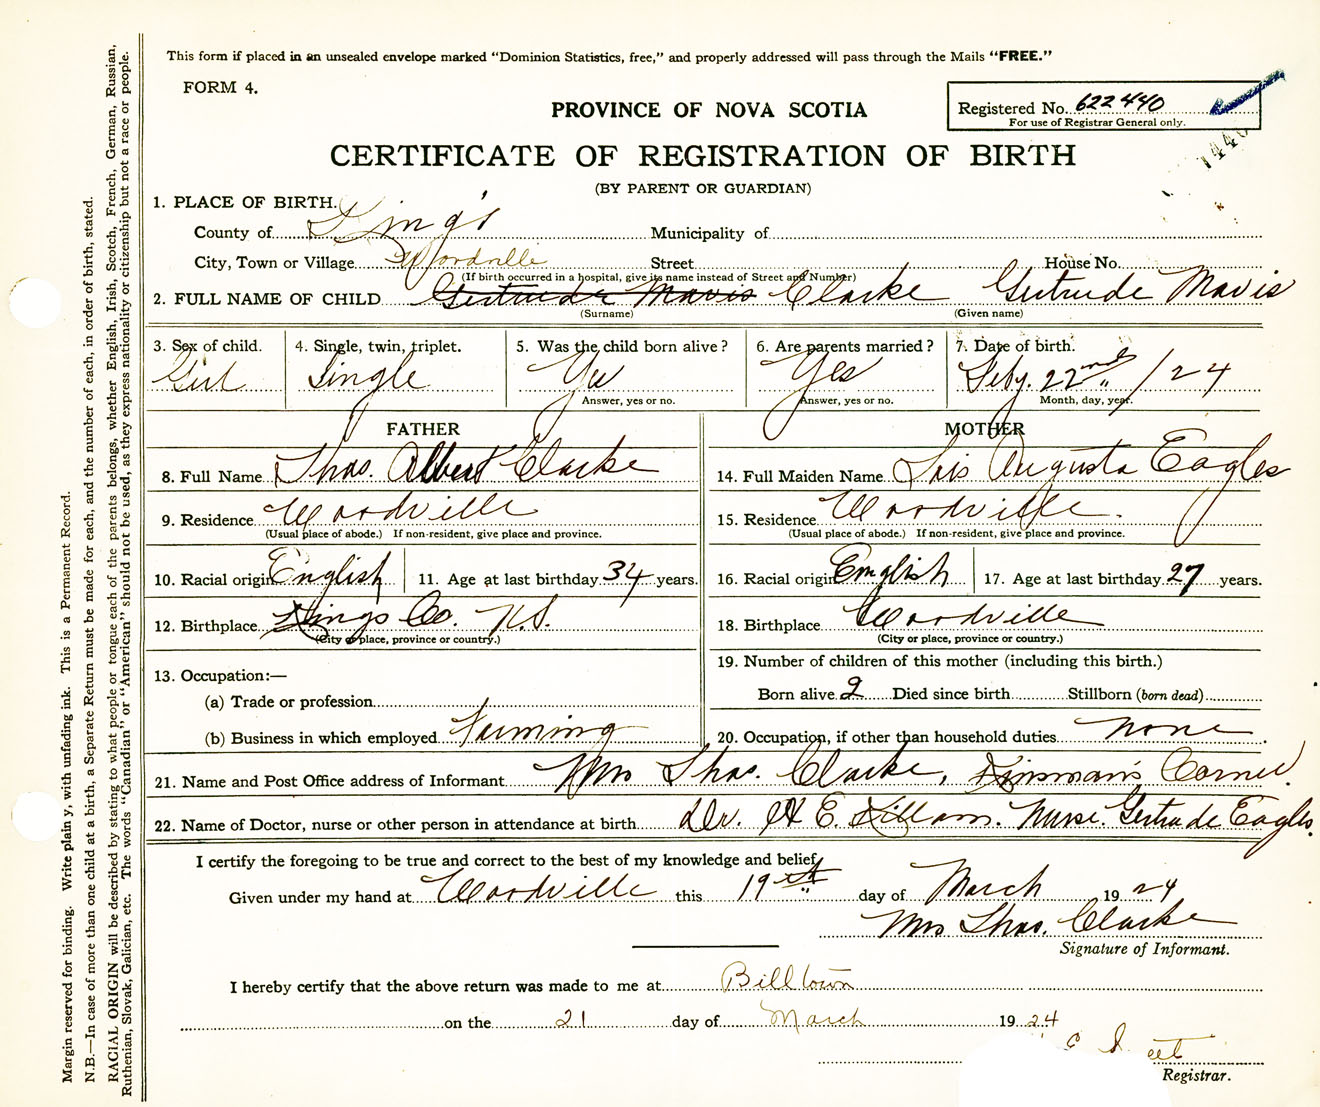 This form if placed in an unsealed envelope marked "Dominion Statistics, free," and properly addressed will pass through the Mails "FREE."
FORM 4.
Registered No. 622440
For use of Registrar General only.
1440
PROVINCE OF NOVA SCOTIA
CERTIFICATE OF REGISTRATION OF BIRTH
(BY PARENT OR GUARDIAN)
1. PLACE OF BIRTH.
County of King's Municipality of
City, Town or Village Woodville Street House No.
(If birth occurred in a hospital, give its name instead of Street and Number)
2. FULL NAME OF CHILD Gertrude Mavis Clarke Gertrude Mavis
(Surname) (Given name)
3. Sex of child. 4. Single, twin, triplet. 5. Was the child born alive? 6. Are parents married? 7. Date of birth.
Girl Single Yes Yes Feby. 22nd /24
Answer, yes or no. Answer, yes or no. Month, day, year.
FATHER
8. Full Name Thos. Albert Clarke
9. Residence Woodville
(Usual place of abode.) If non-resident, give place and province.
10. Racial origin English 11. Age at last birthday 34 years.
12. Birthplace Kings Co. N.S.
(City or place, province or country.)
13. Occupation:—
(a) Trade or profession
(b) Business in which employed Farming
MOTHER
14. Full Maiden Name Lois Augusta Eagles
15. Residence Woodville.
(Usual place of abode.) If non-resident, give place and province.
16. Racial origin English 17. Age at last birthday 27 years.
18. Birthplace Woodville
(City or place, province or country.)
19. Number of children of this mother (including this birth.)
Born alive 2 Died since birth Stillborn (born dead)
20. Occupation, if other than household duties none.
21. Name and Post Office address of Informant Mrs Thos. Clarke, Kinsman's Corner.
22. Name of Doctor, nurse or other person in attendance at birth Dr. H E. Killam. Nurse. Gertrude Eagles.
I certify the foregoing to be true and correct to the best of my knowledge and belief,
Given under my hand at Woodville this 19th day of March 1924
Mrs Thos. Clarke
Signature of Informant.
I hereby certify that the above return was made to me at Billtown
on the 21 day of March 1924
Registrar.
Margin reserved for binding. Write plain y, with unfading ink. This is a Permanent Record.
N.B.—In case of more than one child at a birth, a Separate Return must be made for each, and the number of each, in order of birth, stated.
RACIAL ORIGIN will be described by stating to what people or tongue each of the parents belongs, whether English, Irish, Scotch, French, German, Russian,
Ruthenian, Slovak, Galician, etc. The words "Canadian" or "American" should not be used, as they express nationality or citizenship but not a race or people.